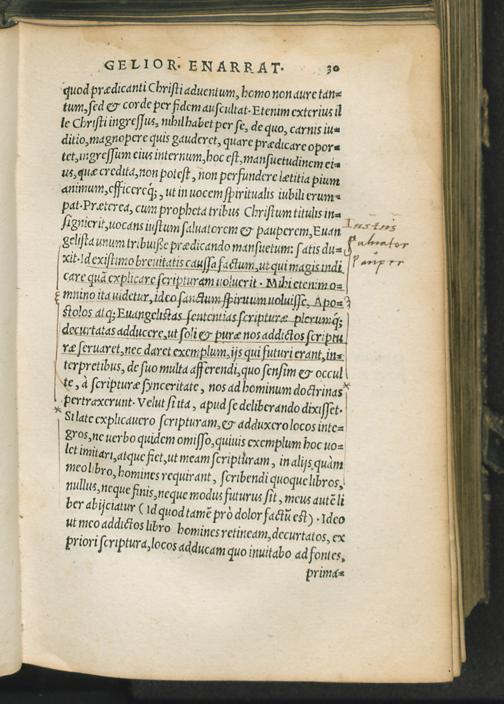 GELIOR· ENARRAT· 30
quod prædicanti Christi aduentum, homo non aure tan=
tum, sed & corde per fidem auscultat· Etenim exterius il
le Christi ingressus, nihil habet per se, de quo, carnis iu=
ditio, magnopere quis gauderet, quare prædicare opor=
tet, ingressum eius internum, hoc est, mansuetudinem ei=
us, quæ credita, non potest, non perfundere lætitia pium
animum, efficereq́;, ut in uocem spiritualis iubili erum=
pat· Præterea, cum propheta tribus Christum titulis in=
signierit, uocans iustum saluatorem & pauperem, Euan
gelista unum tribuisse prædicando mansuetum: satis du=
xit· Id existimo breuitatis caussa factum, ut qui magis indi
care quā explicare scripturam uoluerit· Mihi etenim o=
mnino ita uidetur, ideo sanctum spiritum uoluisse, Apo=
stolos atq; Euangelistas sententias scripturæ plerumq́;
decurtatas adducere, ut soli & puræ nos addictos scriptu
ræ seruaret, nec daret exemplum, ijs qui futuri erant, in=
terpretibus, de suo multa afferendi, quo sensim & occul
te, à scripturæ synceritate, nos ad hominum doctrinas
pertraxerunt· Velut si ita, apud se deliberando dixisset·
Si late explicauero scripturam, & adduxero locos inte=
gros, ne uerbo quidem omisso, quiuis exemplum hoc uo=
let imitari, atque fiet, ut meam scripturam, in alijs, quàm
meo libro, homines requirant, scribendi quoque libros,
nullus, neque finis, neque modus futurus sit, meus autē li
ber abijciatur (Id quod tamē prò dolor factū est)· Ideo
ut meo addictos libro homines retineam, decurtatos, ex
priori scriptura, locos adducam quo inuitabo ad fontes,
prima=
Iustus
Saluator
Pauper